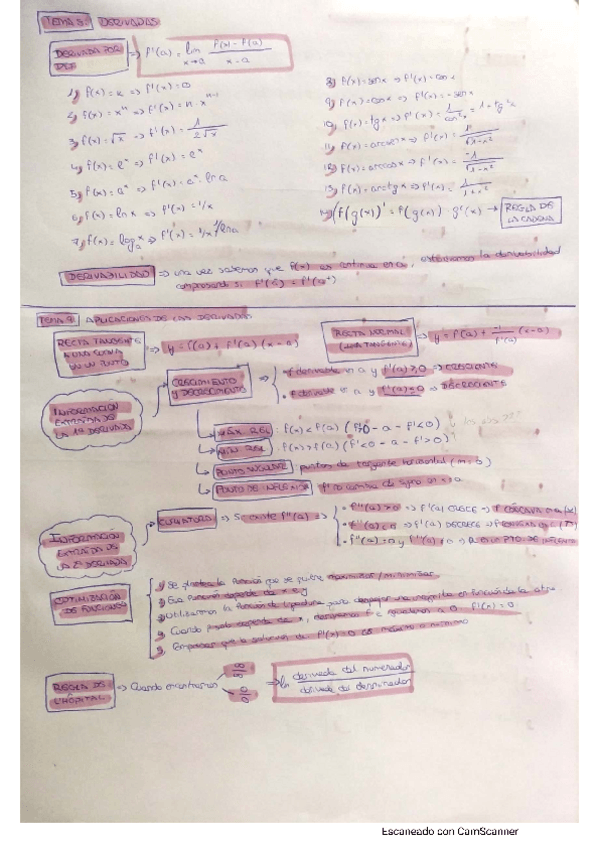 TEMA 8: DERIVADAS
DERIVADA POR DEF ⇒ f'(a) = lim x→a f(x) - f(a) / x - a
1) f(x) = k ⇒ f'(x) = 0
2) f(x) = xⁿ ⇒ f'(x) = n · xⁿ⁻¹
3) f(x) = √x ⇒ f'(x) = 1 / 2√x
4) f(x) = eˣ ⇒ f'(x) = eˣ
5) f(x) = aˣ ⇒ f'(x) = aˣ · ln a
6) f(x) = ln x ⇒ f'(x) = 1/x
8) f(x) = sen x ⇒ f'(x) = cos x
9) f(x) = cos x ⇒ f'(x) = - sen x
10) f(x) = tg x ⇒ f'(x) = 1 / cos² x = 1 + tg² x
11) f(x) = arcsen x ⇒ f'(x) = 1 / √1 - x²
12) f(x) = arccos x ⇒ f'(x) = -1 / √1 - x²
13) f(x) = arctg x ⇒ f'(x) = 1 / 1 + x²
14) (f(g(x))' = f'(g(x)) · g'(x) → REGLA DE LA CADENA
DERIVABILIDAD ⇒ una vez sabemos que f(x) es continua en a, estudiamos la derivabilidad
comprobando si f'(a⁻) = f'(a⁺)
TEMA 9: APLICACIONES DE LAS DERIVADAS
RECTA TANGENTE A UNA CURVA EN UN PUNTO ⇒ y = f(a) + f'(a) (x - a)
RECTA NORMAL ⇒ y = f(a) + -1 / f'(a) (x - a)
INFORMACIÓN EXTRAÍDA DE LA 1ª DERIVADA
CRECIMIENTO Y DECRECIMIENTO
f derivable en a y f'(a) > 0 ⇒ CRECIENTE
f derivable en a y f'(a) ≤ 0 ⇒ DECRECIENTE
MÁX REL : f(x) < f(a)
MIN REL : f(x) > f(a) (f' < 0 - a - f' > 0)
PUNTO SINGULAR : puntos de tangente horizontal (m = 0)
PUNTO DE INFLEXIÓN : f' no cambia de signo en x = a
INFORMACIÓN EXTRAÍDA DE LA 2ª DERIVADA
CURVATURA ⇒ Si existe f''(a) ⇒
f''(a) > 0 ⇒ f'(a) CRECE ⇒ f CÓNCAVA
f''(a) < 0 ⇒ f'(a) DECRECE ⇒
OPTIMIZACIÓN DE FUNCIONES
1) Se plantea la función que se quiere maximizar / minimizar
2) Esa función depende de x e y
3) Utilizamos la función de ligadura para despejar una incógnita en función de la otra.
4) Cuando depende de x, derivamos f e igualamos a 0 f'(x) = 0
5) que la solución de f'(x) = 0 es máximo o mínimo
REGLA DE L'HÔPITAL ⇒ Cuando encontramos ∞/∞ 0/0 ⇒ lim derivada del numerador / derivada del denominador
Escaneado con CamScanner